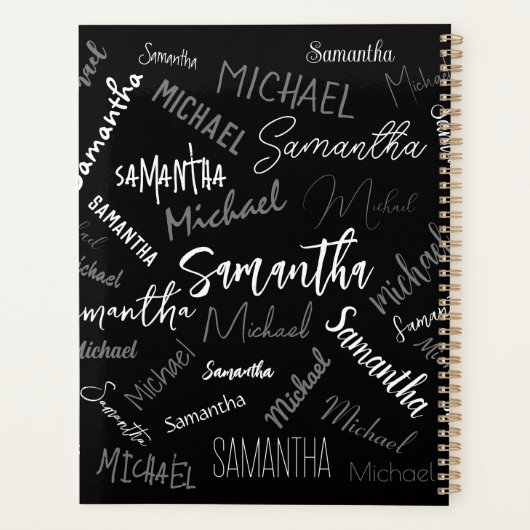 Samantha
Samantha
Michael
MICHAEL
Michael
Samantha
MICHAEL
Samantha
SAMANTHA
Michael
Michael
SAMANTHA
Michael
Samantha
Michael
Samantha
Michael
Samantha
Samantha
Michael
Michael
Samantha
Michael
Samantha
Michael
Samantha
Samantha
Michael
MICHAEL
SAMANTHA
Michael